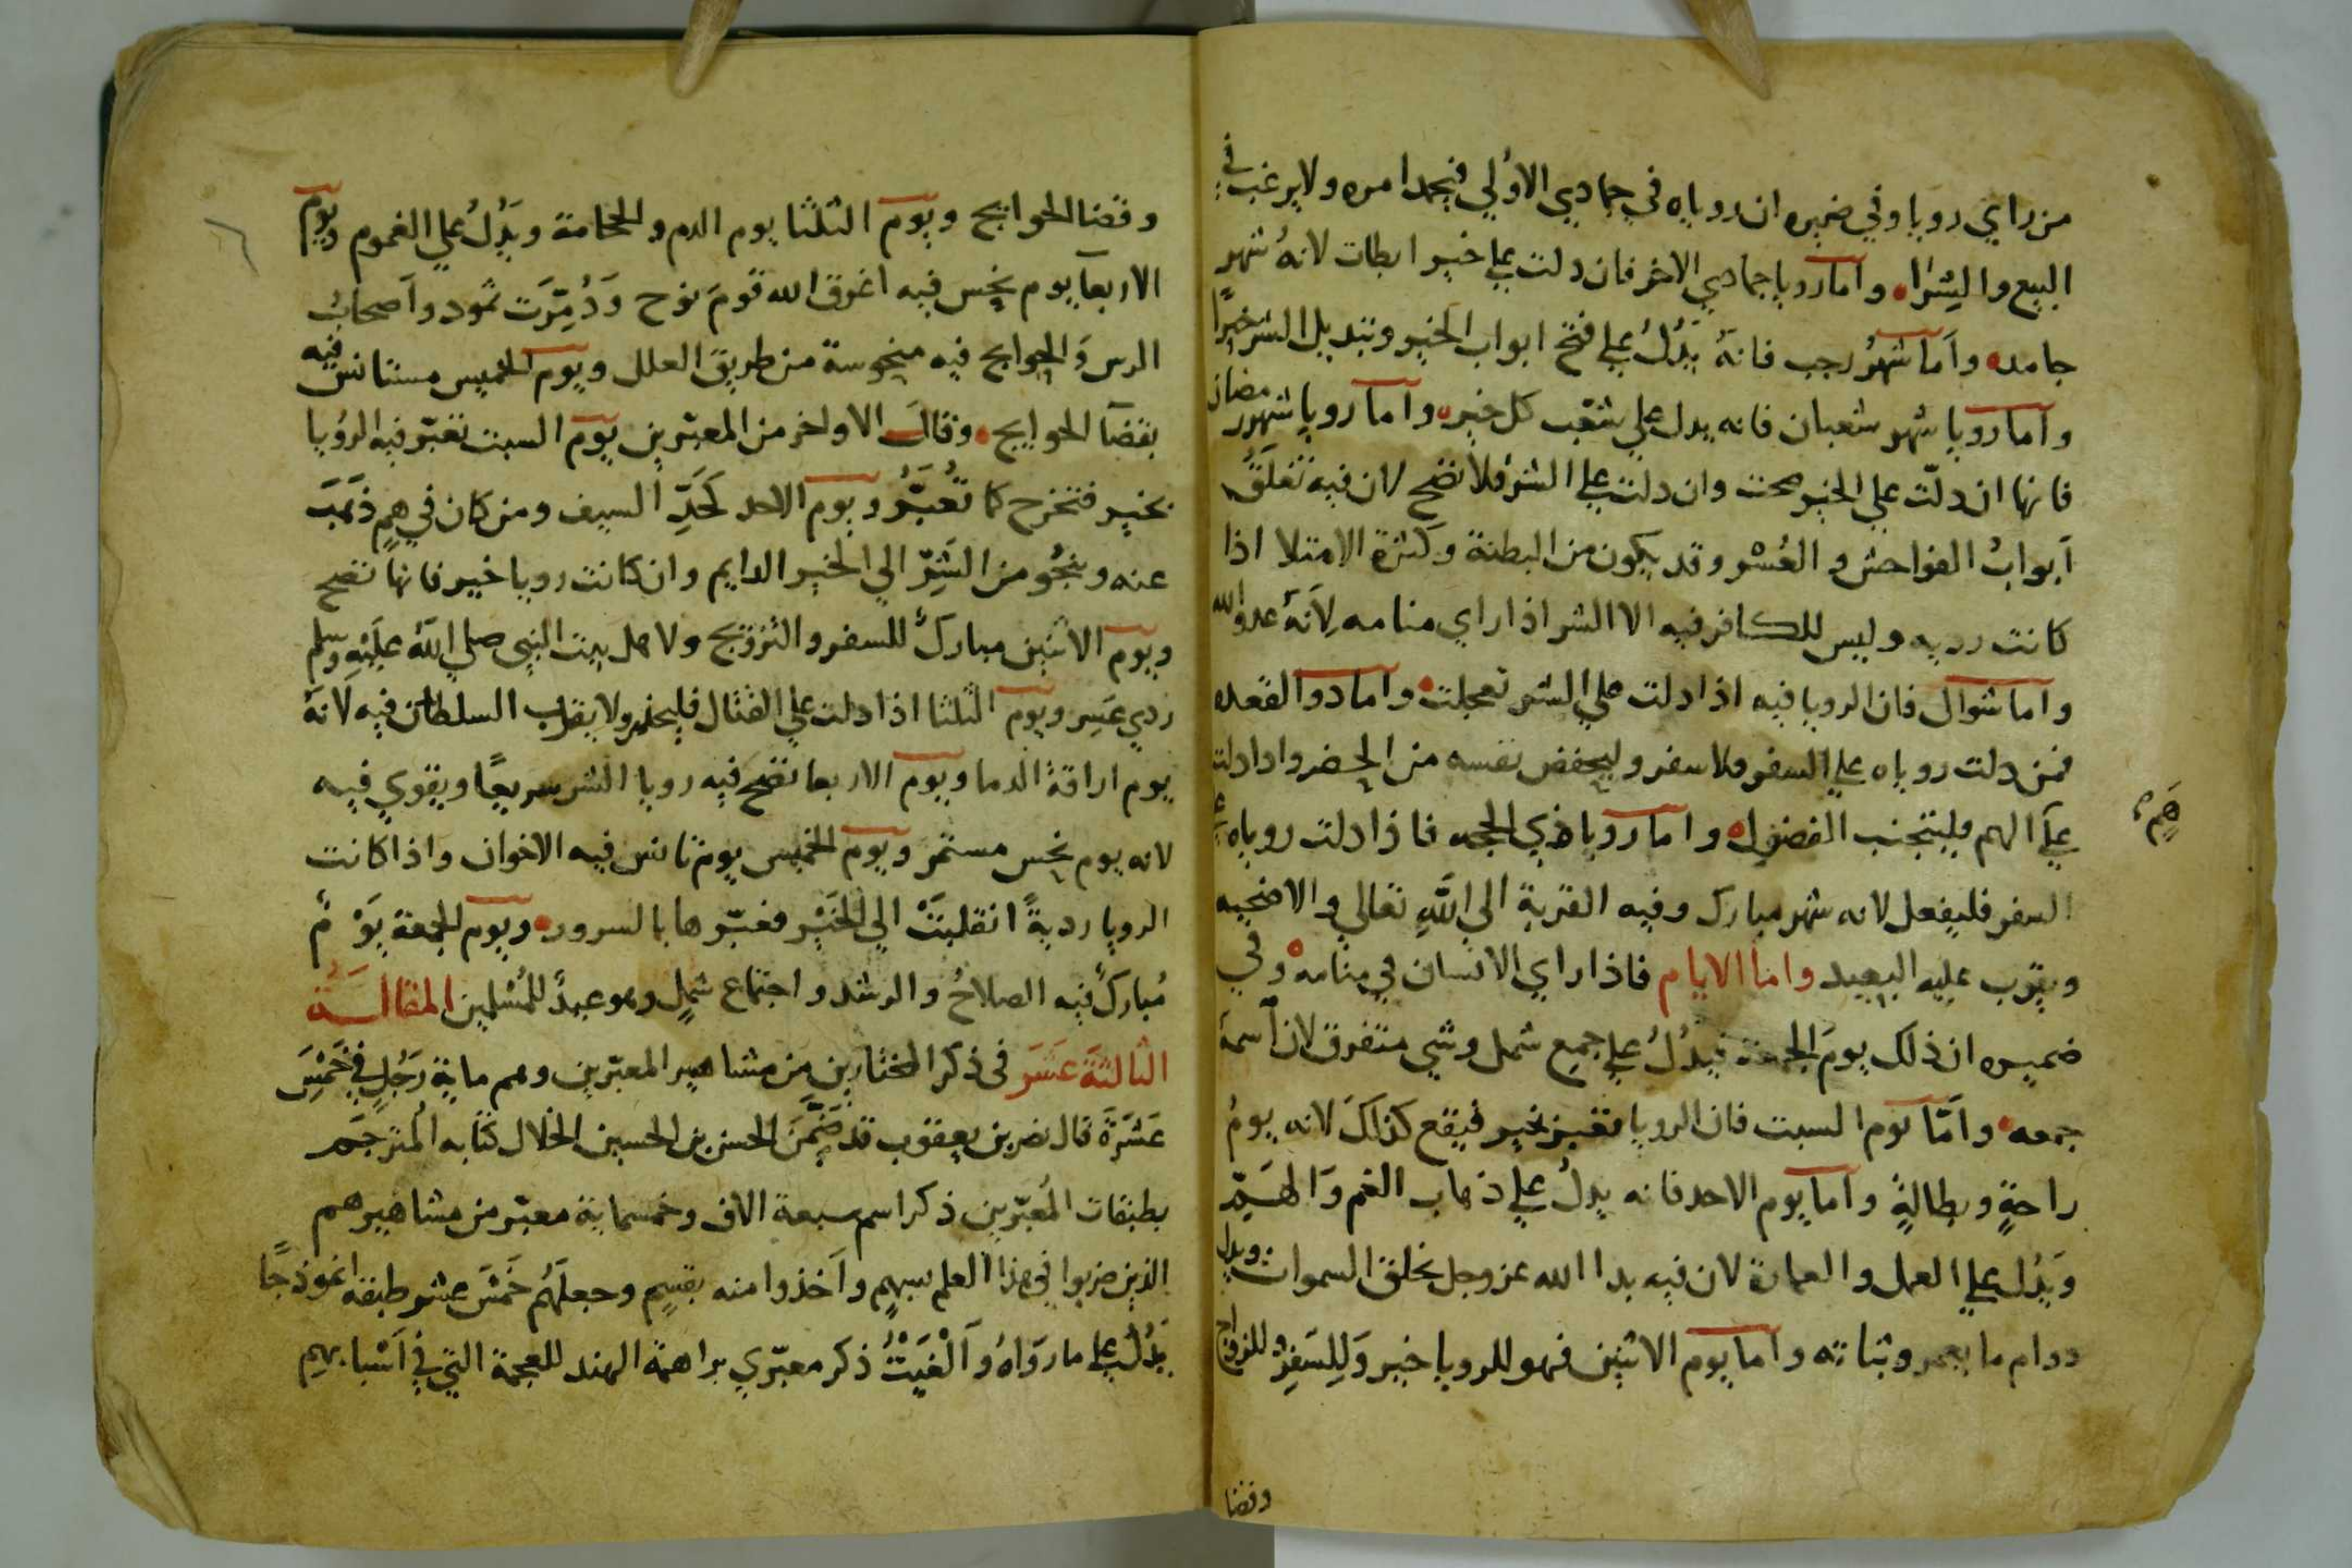 من راي رويا وفي ضميره ان روياه في جمادي الاولي فيجمد امره ولا يرغب في
البيع والشرا، واما رويا جمادي الاخر فان دلت علي خير ابطات لانه شهر
جامد، واما شهر رجب فانه يدل علي فتح ابواب الخير وتبديل الشر خيرًا
واما رويا شهر شعبان فانه يدل علي شعب كل خير، واما رويا شهر رمضان
فانها ان دلّت علي الخير صحت وان دلت علي الشر فلا تصح لان فيه تغلق
ابواب الفواحش والعُسْر وقد يكون من البطنة وكثرة الامتلا اذا
كانت رديه وليس للكافر فيه الا الشر اذا راي منامه لِانَهُ عدو الله
واما شوال فان الرويا فيه اذا دلت علي الشر تعجلت، واما دوا القعده
فمن دلت روياه علي السفر فلا سفر وليحفض نفسه من الحضر وادا دلت
علي الهم فليتجنب الفضول، واما رويا ذي الحجه فاذا دلت روياه علي
السفر فليفعل لانه شهر مبارك وفيه القربة الي اللهِ تعالي والاضحيه
ويقرب عليه البعيد واما الايام فاذا راي الانسان في منامه، وفي
ضميره ان ذلك يوم الجمعة فيدُلُ علي جمع شمل وشي متفرق لان اسمهُ
جمعه، وامّا يوم السبت فان الرويا تعبر بخير فيقع كذلك لانه يومُ
راحةٍ وبطالةٍ واما يوم الاحد فانه يدلُ علي ذهاب الغم والهَمِّ
ويَدُل علي العمل والعمارة لان فيه بدا الله عز وجل بخلق السموات ويدل
دوام ما يعمر وثباته واما يوم الاثنين فهو للرويا خير وَللِسَفِر وللزواج
وقضا
هِم
وقضا الحوايج ويوم الثلثا يوم الدم والحجامة ويَدُلُ علي الغموم ويوم
الاربعا يوم نحس فيه اغرق الله قومَ نوح وَدُمِّرَت ثمود واصحابُ
الرس وَالحوايج فيه منحوسة من طريق العلل ويوم الخميس مستانس فيه
بقضآ الحوايج، وقالَ الاواخر من المعبّرين يوم السبت تعبّر فيه الروُيا
بخير فتخرج كما تُعَبَّرُ ويوم الاحد كَحَدِّ السيف ومن كان في همٍ ذهَبَ
عنه وينجُو من الشَرِّ الي الخير الدايم وان كانت رويا خير فانها تصح
ويوم الاثنين مبارك للسفر والتزويج ولاهل بيت النبي صلي اللهُ علَيْهِ وسلم
ردي عَسِر ويوم الثلثا اذا دلت علي القتال فليحذر ولا يقرب السلطان فيه لانهُ
يوم اراقة الدما ويوم الاربعا تصح فيه رويا الشر سريعًا ويقوي فيه
لانه يوم نحس مستمر ويوم الخميس يوم تانس فيه الاخوان واذا كانت
الرويا رديةً انقلبَتْ الي الخَيْر فعبّرها بالسرور، ويوم الجمعة يَوْمُ
مُبارك فيه الصلاحُ والرشد واجتماع شملٍ وهو عيدُ للمُسْلمين المقالـــةُ
الثالثَة عَشَرَ في ذكر المختارين مِن مشاهير المعبّرين وهم ماية رَجُلٍ في خَمْسَ
عَشَرَةَ قال نصر بن يعقوب قد ضَمَّنَ الحسن بن الحسين الخلال كتابه المُترجَم
بطبقات المُعبّرين ذكر اسم سبعة الاف وخمسماية معبّر من مشاهيرهم
الذين ضربوا في هذا العلم بسهمٍ واَخذوا منه بقسِمٍ وجعلَهُم خَمْسَ عشر طبقه انموذجًا
يَدُلُ علي ما روَاهُ وَاَلْغَيْتُ ذكر معبّري براهمة الهند للعجمة التي في اَسْباهِم